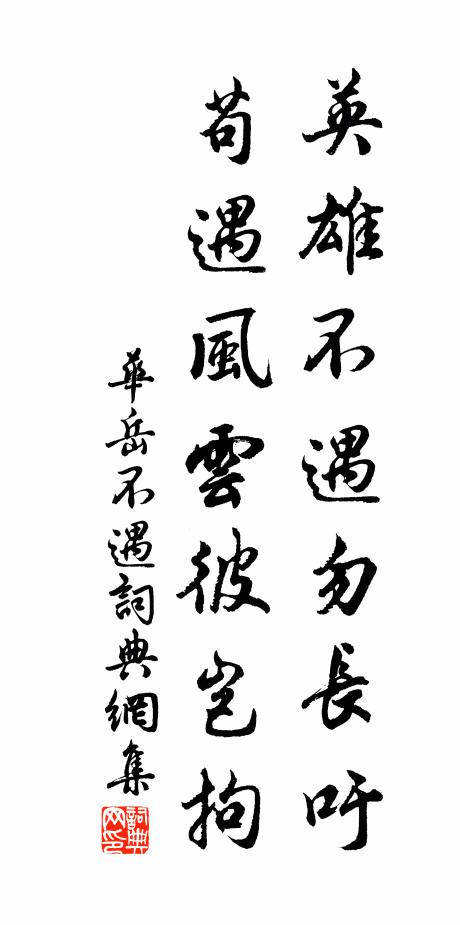 英雄不遇勿長吁
苟遇風雲彼豈拘
華岳不遇詞典網集
詞典網印